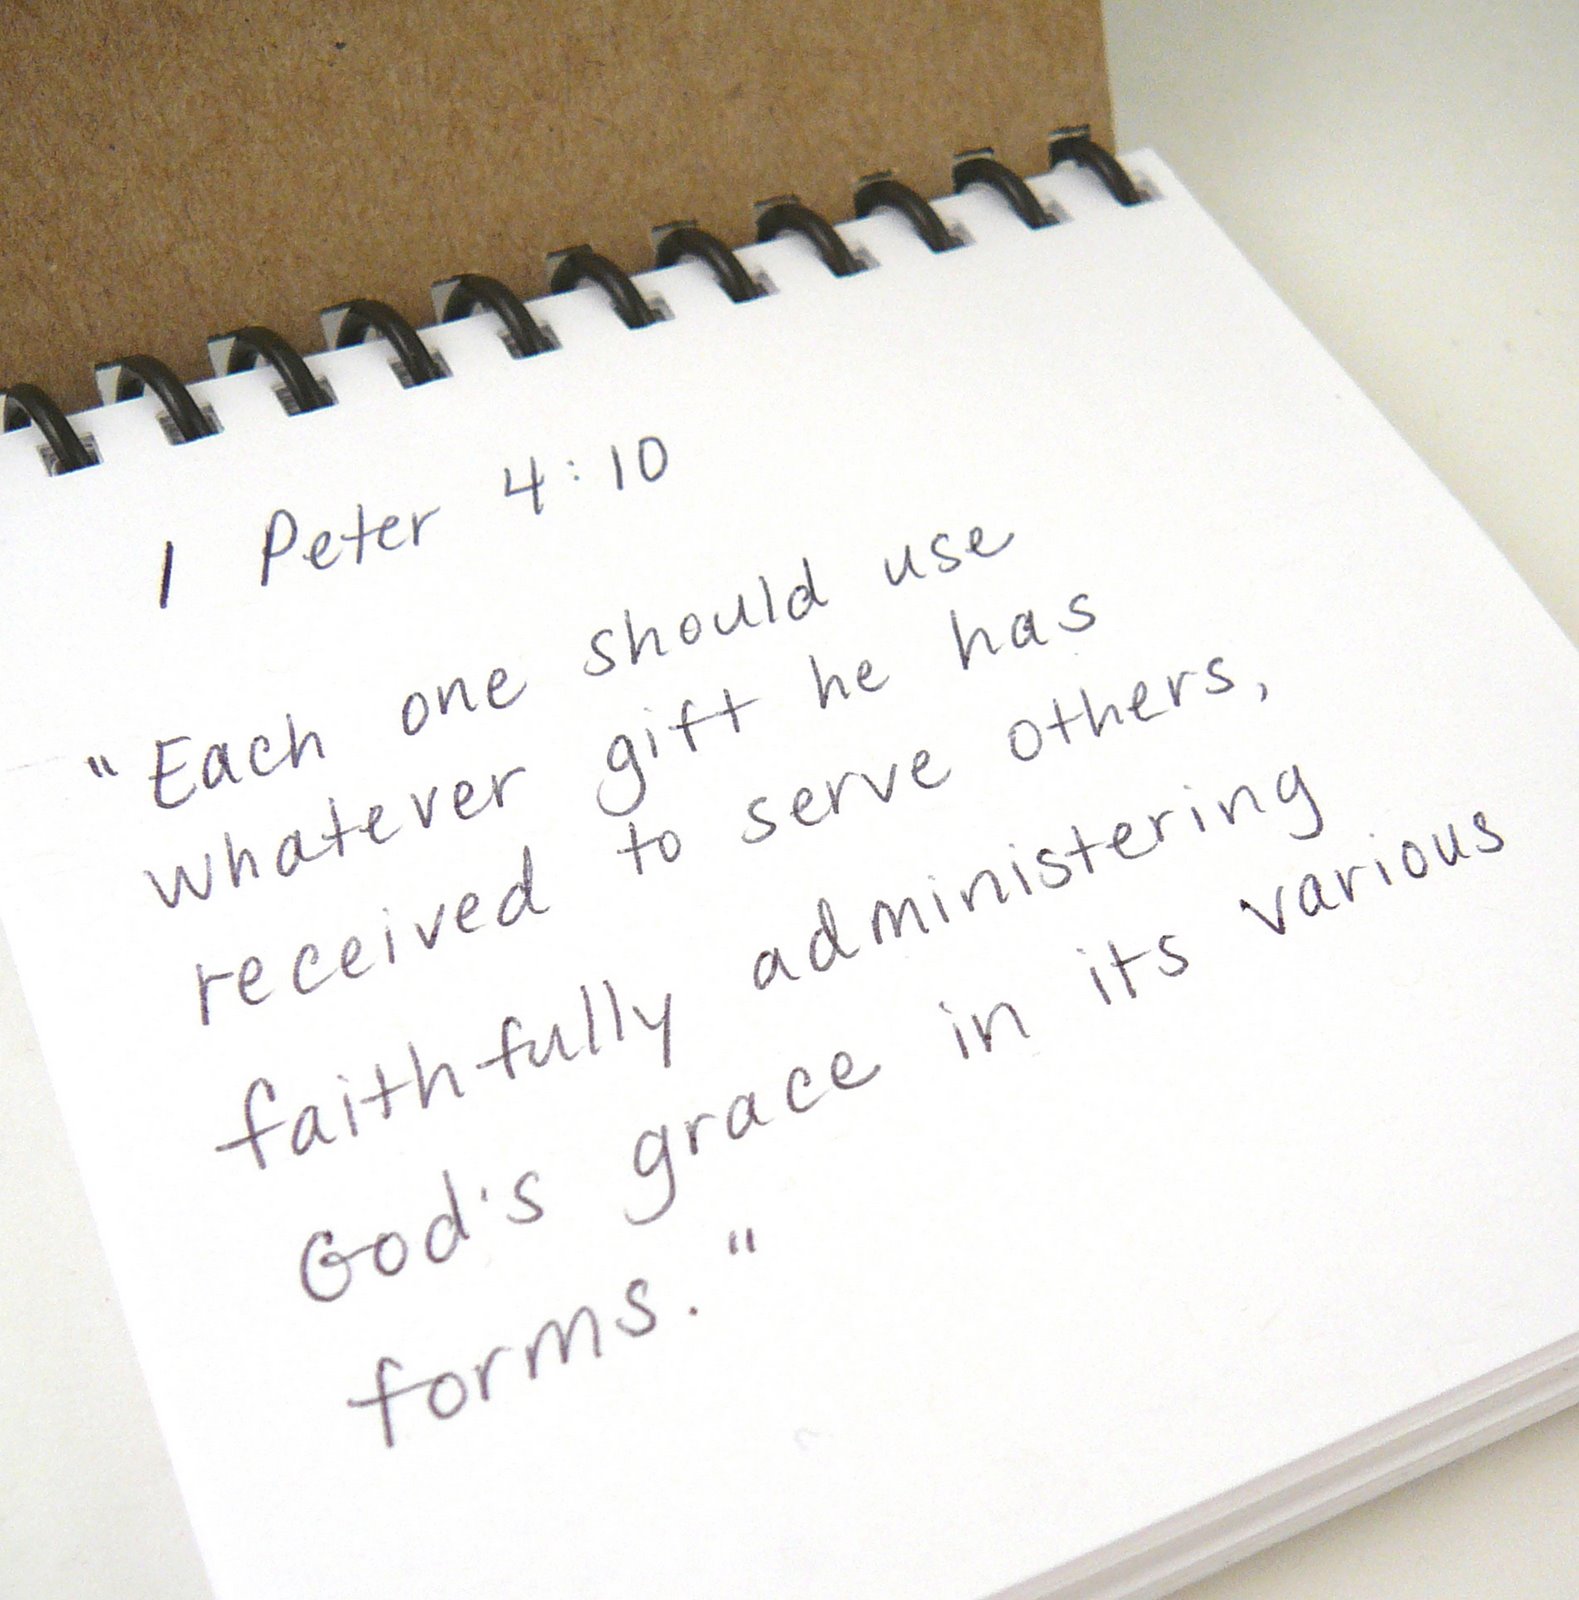 1 Peter 4:10
"Each one should use
whatever gift he has
received to serve others,
faithfully administering
God's grace in its various
forms."